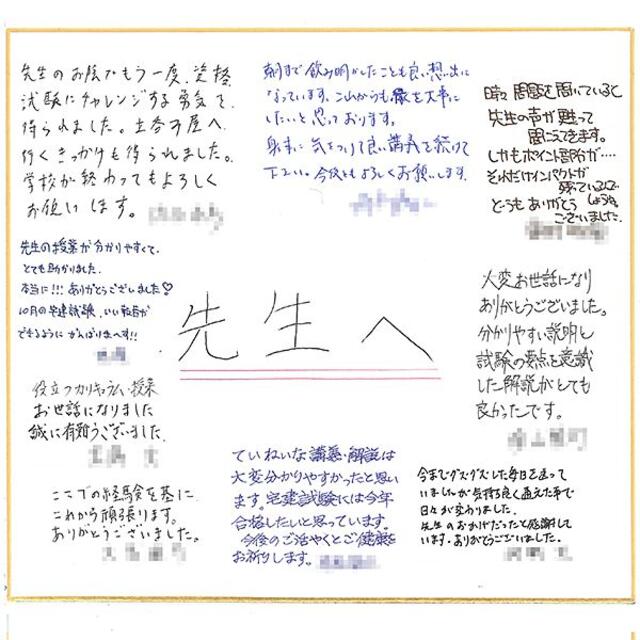 先生のお陰でもう一度、資格
試験にチャレンジする勇気を
得られました。土呑子屋へ
行くきっかけも得られました。
学校が終わってもよろしく
お願いします。
朝まで飲み明かしたことも良い想い出に
なっています。これからも縁を大事に
したいと思っております。
身体に気をつけて良い講義を続けて
下さい。今後ともよろしくお願いします。
時々問題を聞いていると
先生の声が甦って
聞こえてきます。
しかもポイント部分が…
それだけインパクトが
残っているんで
しょうね。
どうもありがとう
ございました。
先生の授業が分かりやすくて、
とても助かりました。
本当に!!!ありがとうございました♡
10月の宅建試験、いい報告が
できるようにがんばりまーす!!
先生へ
大変お世話になり
ありがとうございました。
分かりやすい説明と
試験の要点を意識
した解説がとても
良かったです。
役立つカリキュラム・授業
お世話になりました
誠に有難うございました。
ていねいな講義・解説は
大変分かりやすかったと思い
ます。宅建試験には今年
合格したいと思っています。
今後のご活やくとご健康を
お祈りします。
ここでの経験を基に
これから頑張ります。
ありがとうございました。
今までグズグズした毎日を送って
いましたが気持ち良く通えた事で
日々が変わりました。
先生のおかげだったと感謝して
います。ありがとうございました。